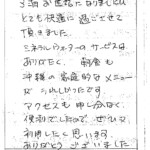 3泊お世話になりました。
とても快適に過ごさせて
頂きました。
ミネラルウォーターのサービスは
ありがたく、朝食も
沖縄の家庭的なメニュー
でうれしかったです
アクセスも申し分なく
便利でしたので、ぜひまた
利用したく思います。
ありがとうございました